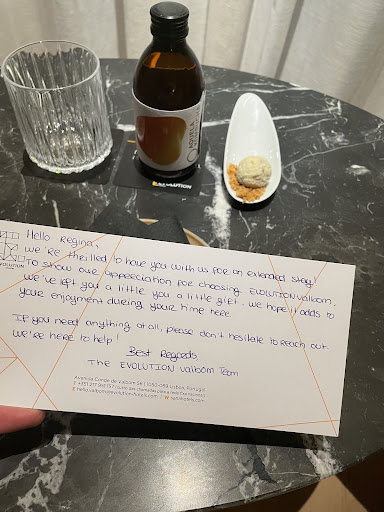 EVOLUTION
Hello Regina,
We're thrilled to have you with us for an extended stay!
To show our appreciation for choosing EVOLUTION Valbom,
we've left you a little you a little gift. We hope it adds to
your enjoyment during your time here.
If you need anything at all, please don't hesitate to reach out.
We're here to help!
Best Regards,
The EVOLUTION Valbom Team
EVOLUTION
Avenida Conde de Valbom 56 | 1050-069 Lisbon, Portugal